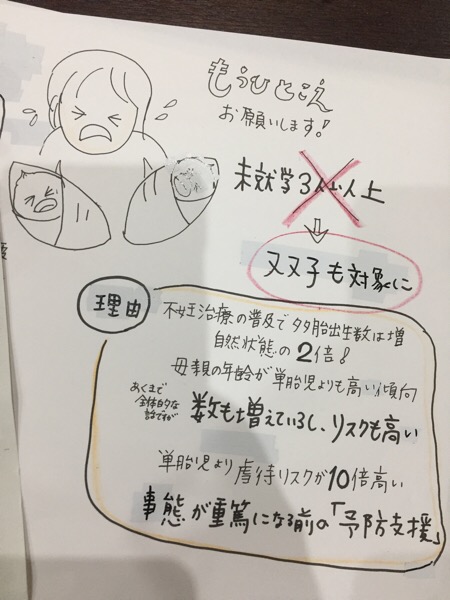 もうひとこえ
お願いします!
未就学3人以上
⇩
双子も対象に
理由
不妊治療の普及で多胎出生数は増
自然状態の2倍!
母親の年齢が単胎児よりも高い傾向
あくまで
全体的な
話ですが
数も増えているし、リスクも高い
単胎児より虐待リスクが10倍高い
事態が重篤になる前の「予防支援」